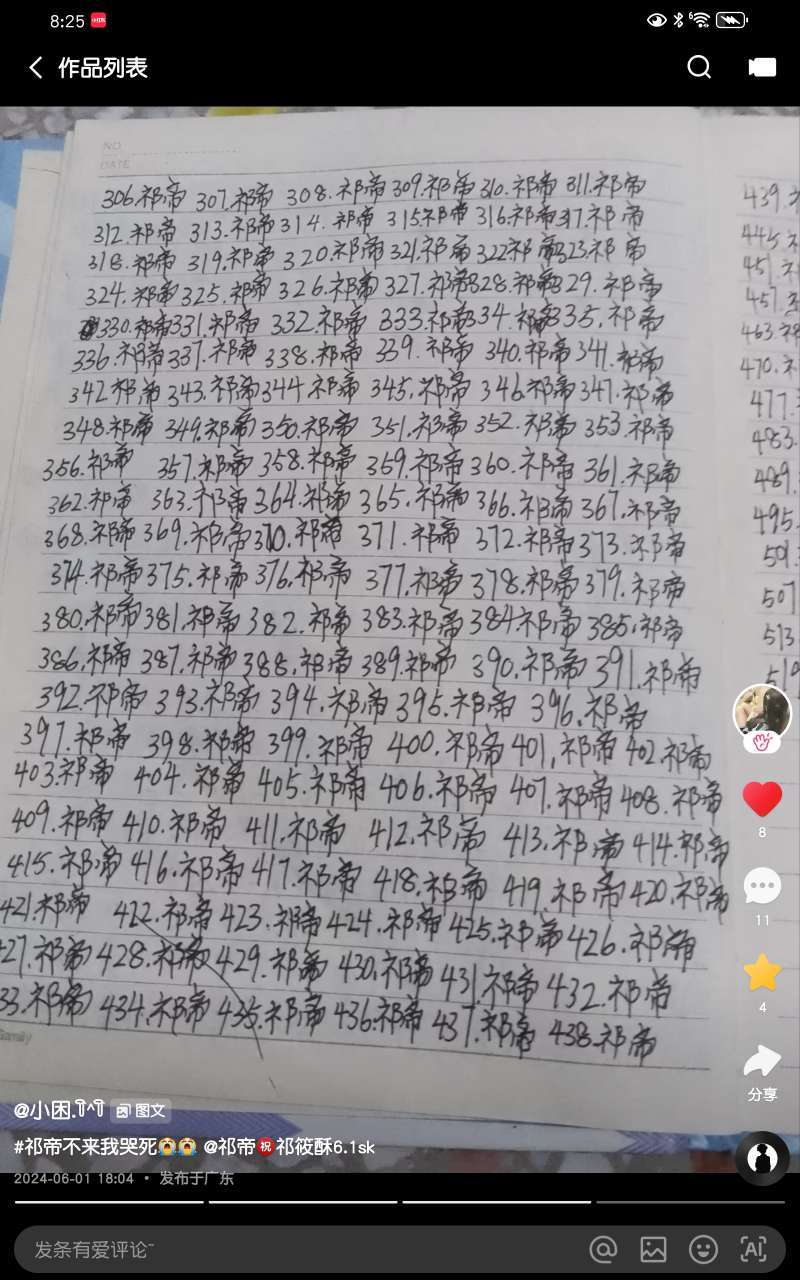 8:25
作品列表
NO
DATE
306.祁帝 307.祁帝 308.祁帝 309.祁帝 310.祁帝 311.祁帝
312.祁帝 313.祁帝 314.祁帝 315.祁帝 316.祁帝 317.祁帝
318.祁帝 319.祁帝 320.祁帝 321.祁帝 322.祁帝 323.祁帝
324.祁帝 325.祁帝 326.祁帝 327.祁帝 328.祁帝 329.祁帝
330.祁帝 331.祁帝 332.祁帝 333.祁帝 334.祁帝 335.祁帝
336.祁帝 337.祁帝 338.祁帝 339.祁帝 340.祁帝 341.祁帝
342.祁帝 343.祁帝 344.祁帝 345.祁帝 346.祁帝 347.祁帝
348.祁帝 349.祁帝 350.祁帝 351.祁帝 352.祁帝 353.祁帝
356.祁帝 357.祁帝 358.祁帝 359.祁帝 360.祁帝 361.祁帝
362.祁帝 363.祁帝 364.祁帝 365.祁帝 366.祁帝 367.祁帝
368.祁帝 369.祁帝 370.祁帝 371.祁帝 372.祁帝 373.祁帝
374.祁帝 375.祁帝 376.祁帝 377.祁帝 378.祁帝 379.祁帝
380.祁帝 381.祁帝 382.祁帝 383.祁帝 384.祁帝 385.祁帝
386.祁帝 387.祁帝 388.祁帝 389.祁帝 390.祁帝 391.祁帝
392.祁帝 393.祁帝 394.祁帝 395.祁帝 396.祁帝
397.祁帝 398.祁帝 399.祁帝 400.祁帝 401.祁帝 402.祁帝
403.祁帝 404.祁帝 405.祁帝 406.祁帝 407.祁帝 408.祁帝
409.祁帝 410.祁帝 411.祁帝 412.祁帝 413.祁帝 414.祁帝
415.祁帝 416.祁帝 417.祁帝 418.祁帝 419.祁帝 420.祁帝
421.祁帝 422.祁帝 423.祁帝 424.祁帝 425.祁帝 426.祁帝
27.祁帝 428.祁帝 429.祁帝 430.祁帝 431.祁帝 432.祁帝
33.祁帝 434.祁帝 435.祁帝 436.祁帝 437.祁帝 438.祁帝
439.
445.
451.
457.
463.
470.
477.
483.
489.
495.
501.
507
513
519
8
11
4
分享
@小困. 图文
#祁帝不来我哭死😭😭 @祁帝㊗️祁筱酥6.1sk
2024-06-01 18:04 · 发布于广东
发条有爱评论~